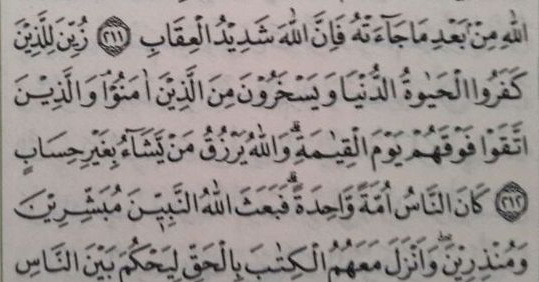 اللهِ مِنْۢ بَعْدِ مَا جَآءَتْهُ فَاِنَّ اللهَ شَدِيْدُ الْعِقَابِ ﴿۲۱۱﴾ زُيِّنَ لِلَّذِيْنَ
كَفَرُوا الْحَيٰوةُ الدُّنْيَا وَيَسْخَرُوْنَ مِنَ الَّذِيْنَ اٰمَنُوْا ۘ وَالَّذِيْنَ
اتَّقَوْا فَوْقَهُمْ يَوْمَ الْقِيٰمَةِ ؕ وَاللهُ يَرْزُقُ مَنْ يَّشَآءُ بِغَيْرِ حِسَابٍ
﴿۲۱۲﴾ كَانَ النَّاسُ اُمَّةً وَّاحِدَةً ۟ فَبَعَثَ اللهُ النَّبِيّٖنَ مُبَشِّرِيْنَ
وَمُنْذِرِيْنَ ۪ وَاَنْزَلَ مَعَهُمُ الْكِتٰبَ بِالْحَقِّ لِيَحْكُمَ بَيْنَ النَّاسِ